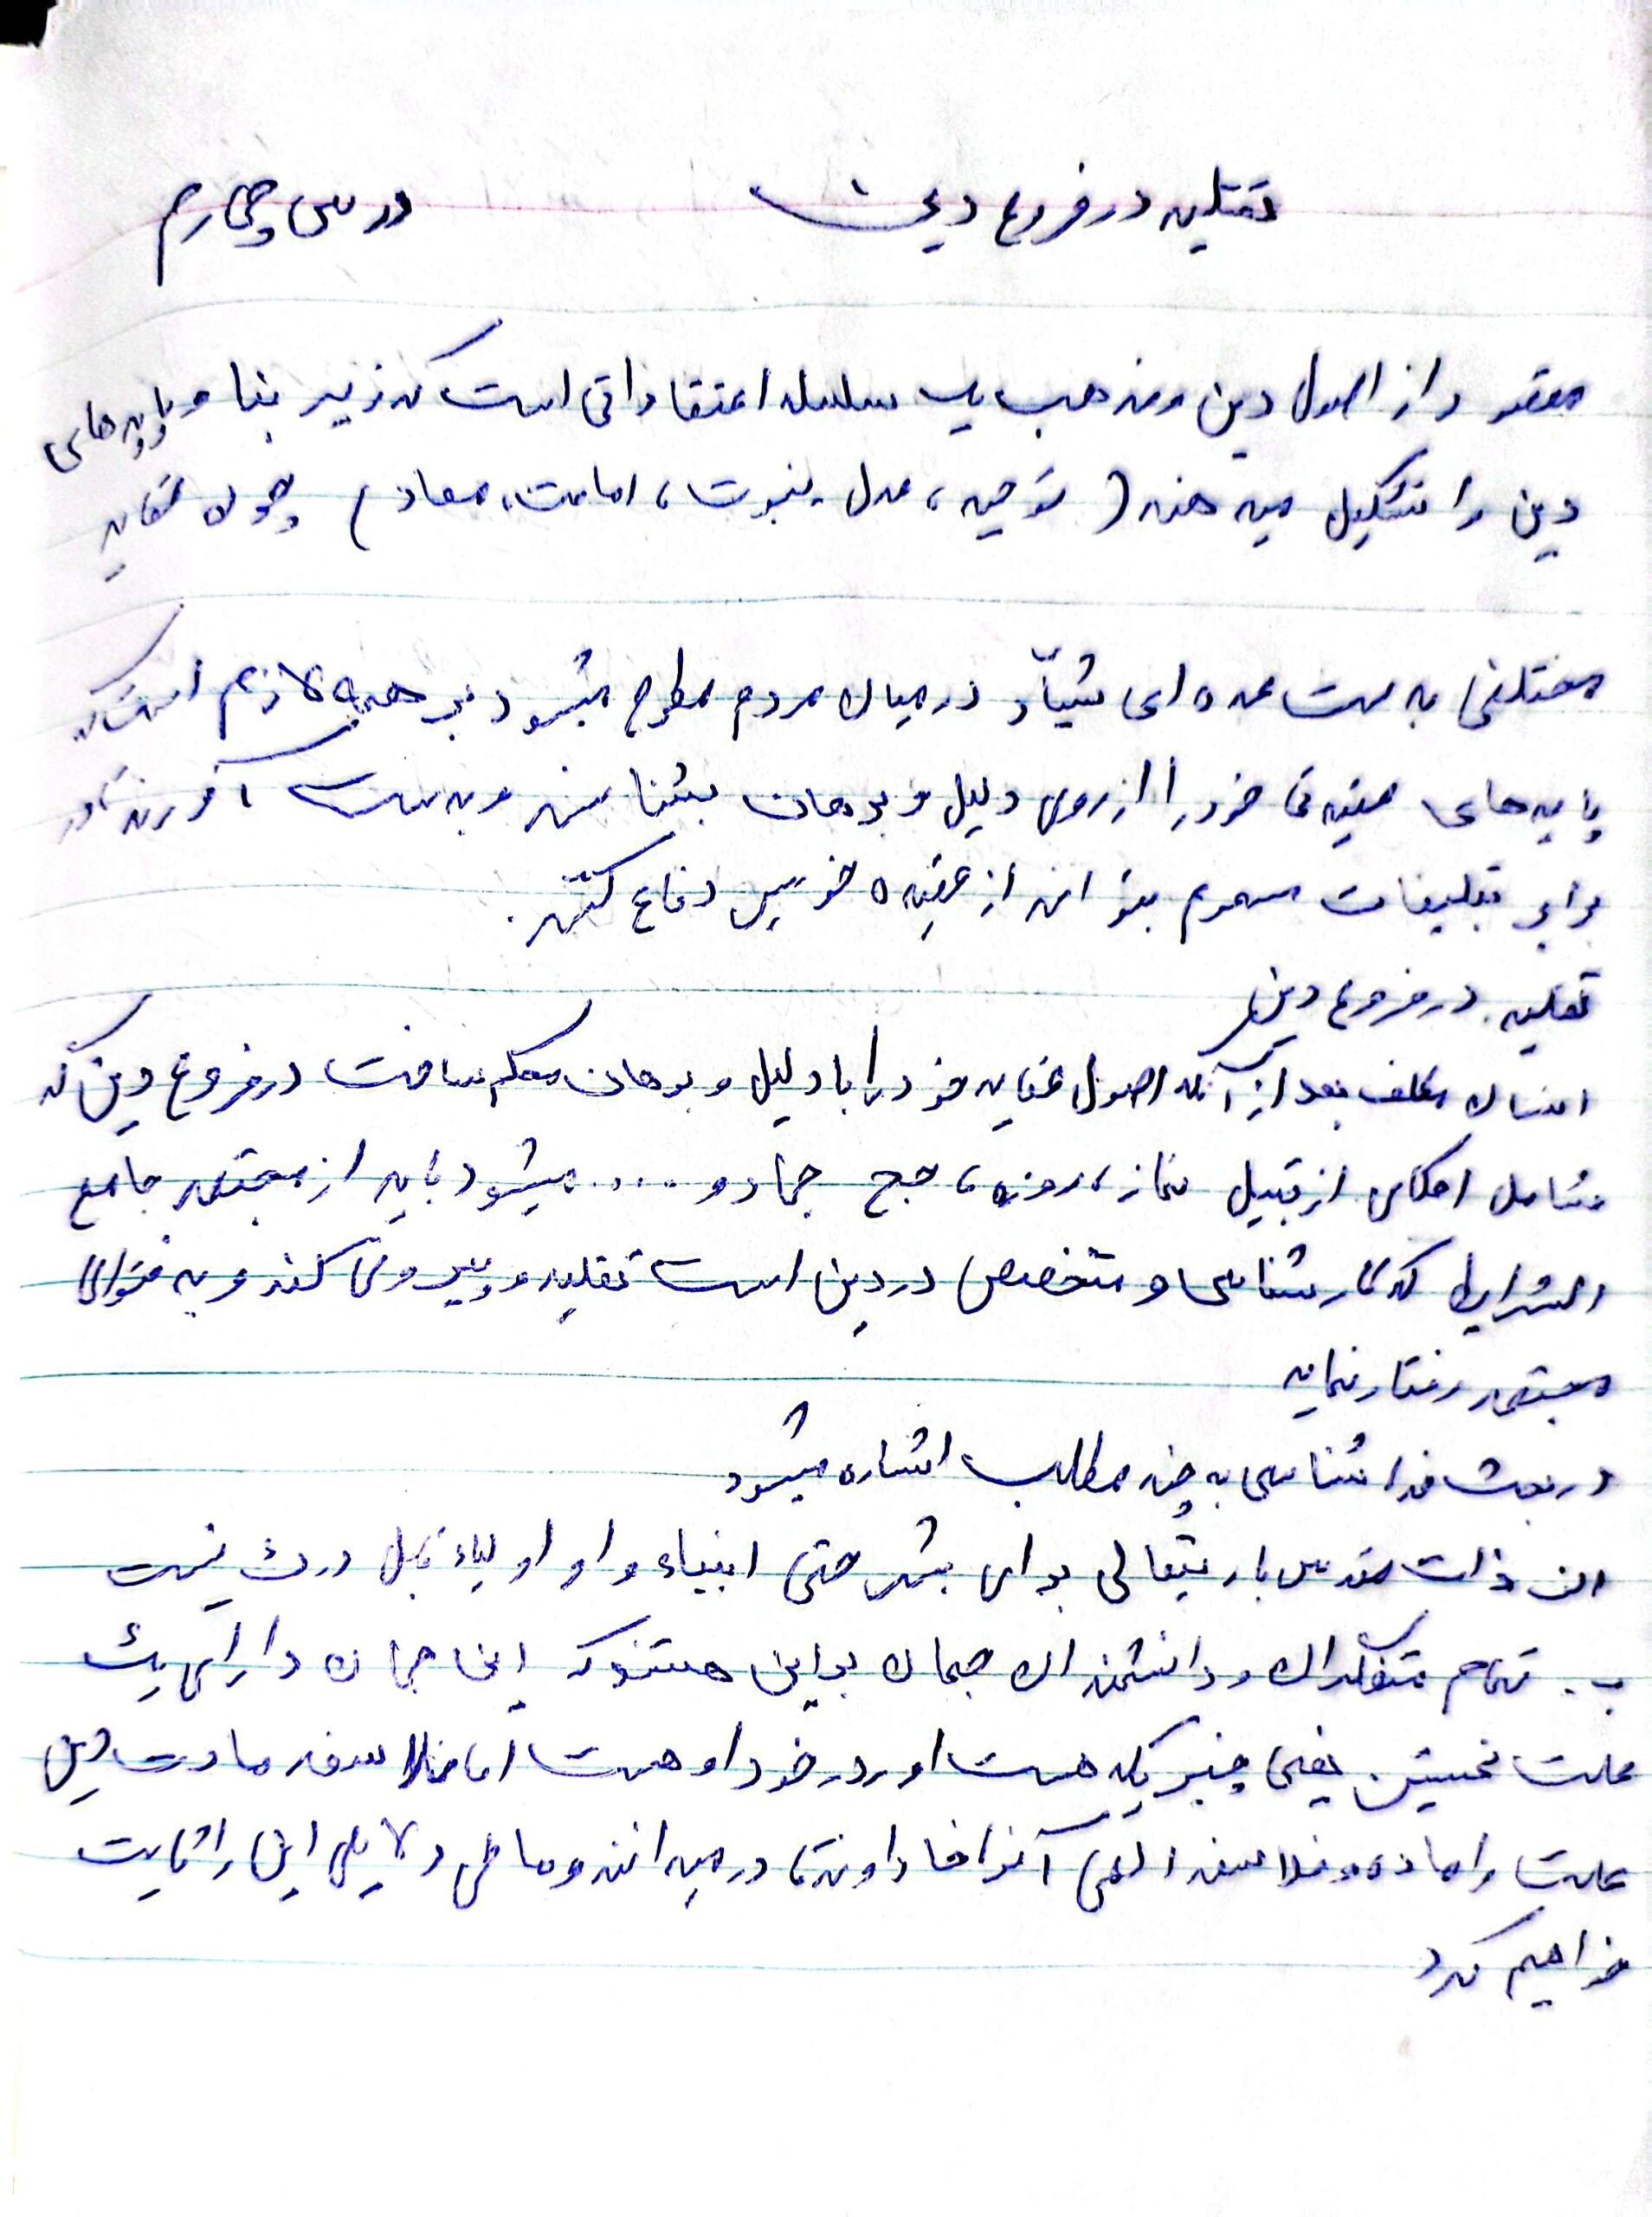 تقلید در فروع دین درس چهارم
مقصود از اصول دین و مذهب یک سلسله اعتقاداتی است که زیر بنا و پایه های
دین را تشکیل میدهند (توحید، عدل، نبوت، امامت، معاد) چون عقاید
مختلفی به دست عده ای شیاد در میان مردم مطرح میشود بر همه لازم است که
پایه های عقیدتی خود را از روی دلیل و برهان بشناسند و به دست آورند تا در
برابر تبلیغات مسموم بتوانند از عقیده خویش دفاع کنند.
تقلید در فروع دین
انسان مکلف بعد از آنکه اصول عقاید خود را با دلیل و برهان محکم ساخت در فروع دین که
شامل احکامی از قبیل نماز، روزه، حج جهاد و .... میشود باید از مجتهد جامع
الشرایط که کارشناس و متخصص در دین است تقلید و پیروی کند و به فتوای
مجتهد رفتار نماید
در بحث خدا شناسی به چند مطلب اشاره میشود
الف ذات مقدس باریتعالی برای بشر حتی انبیاء و او اولیاء قابل درک نیست
ب. تمام متفکران و دانشمندان جهان براین هستند که این جهان دارای یک
علت نخستین یعنی چیزیکه هست او در خود او هست اما فلاسفه مادت این
علت را ماده و فلاسفه الهی آنرا خداوند قادر میدانند و ما طی دلایلی این را ثابت
خواهیم کرد